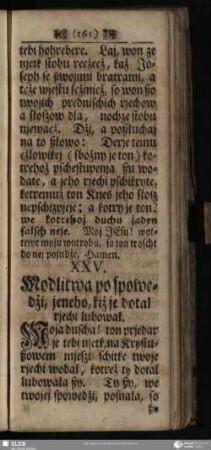 (161)
tebi hohrebere. Laj, won ze
njetk stobu reczecz, kaž Jo-
seph se swojimi bratrami, a
teže wjesłu sczinicz, so won ßo
twojich preduschich rjechow
a stoszow dla, nochze stobu
njewacz. Dži, a posłuchaj
na to ßlowo: Derje temu
człowikej (sbožny je ton) ko-
trehož pschestupenja ßu wo-
date, a jeho rjechi pschikryte,
ketremuž ton Knes jeho stosz
nepschizpjeje: a kotry je ton?
we kotrehož duchu žadyn
falsch neje. Moj JEsu! wot-
tewr moju wutrobu, so ton troscht
do nej pojndze. Hamen.
XXV.
Modlitwa po spowe-
dži, jeneho, kiž je dotal
rjechi lubowal.
Moja duscha! ton prjedar
je tebi njetk, na Krystu-
ßowem mjeszi schitke twoje
rjechi wodal, kotrež ty dotal
lubowala sy. Ty sy, we
twojej spowedzi, posnala, so
ße
SLUB